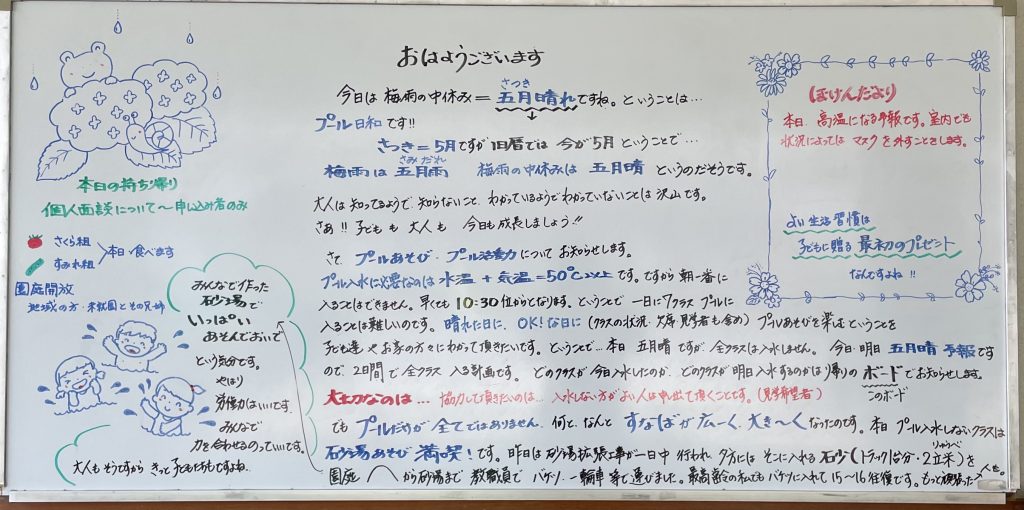 おはようございます
今日は 梅雨の中休み=五月晴れですね。ということは…
さつき
プール日和です!!
さつき=5月ですが 旧暦では 今が5月 ということで…
梅雨は五月雨 梅雨の中休みは 五月晴 というのだそうです。
さみだれ
大人は知ってるようで、知らないこと、わかっているようでわかっていないことは沢山です。
さあ!! 子どもも 大人も 今日も成長しましょう!!
さて、プールあそび・プール活動について お知らせします。
プール入水に必要なのは 水温+気温=50℃以上です。ですから 朝一番に
入ることはできません。早くても 10:30位からとなります。ということで 一日に7クラス プールに
入ることは難しいのです。晴れた日に、OK!な日に(クラスの状況・欠席見学者も含め)プールあそびを楽しむということを
子ども達やお家の方々にわかって頂きたいです。ということで…本日 五月晴ですが 全クラスは入水しません。今日・明日 五月晴予報です
ので、2日間で全クラス 入る計画です。どのクラスが今日入水したのか、どのクラスが明日入水するのかは 帰りのボードでお知らせします。
このボード
大切なのは… 協力して頂きたいのは… 入水しない方がよい人は申し出て頂くことです。(見学希望者)
でも プールだけが 全てではありません。何と、なんと すなばが広ーく、大き〜くなったのです。本日 プール入水しないクラスは
砂場あそび 満喫!です。昨日は 砂場拡張工事が一日中 行われ、夕方には そこに入れる石砂(トラック1台分・2立米)を
りゅうべ
園庭 から砂場まで 教職員で バケツ・一輪車 等で運びました。最高齢の私でもバケツに入れて 15〜16往復です。もっと頑張った人も。
本日の持ち帰り
個人面談について〜申し込み者のみ
さくら組
すみれ組
本日食べます
園庭開放
地域の方・未就園とその兄姉
みんなで作った
砂場で
いっぱい
あそんでおいで
という気分です。
やはり
労働力はいいです。
みんなで
力を合わせるのっていいです。
大人もそうですから きっと子どもたちもですよね。
ほけんだより
本日、高温になる予報です。室内でも
状況によっては マスクを外すことをします。
よい生活習慣は
子どもに贈る 最初のプレゼント
なんですよね!!